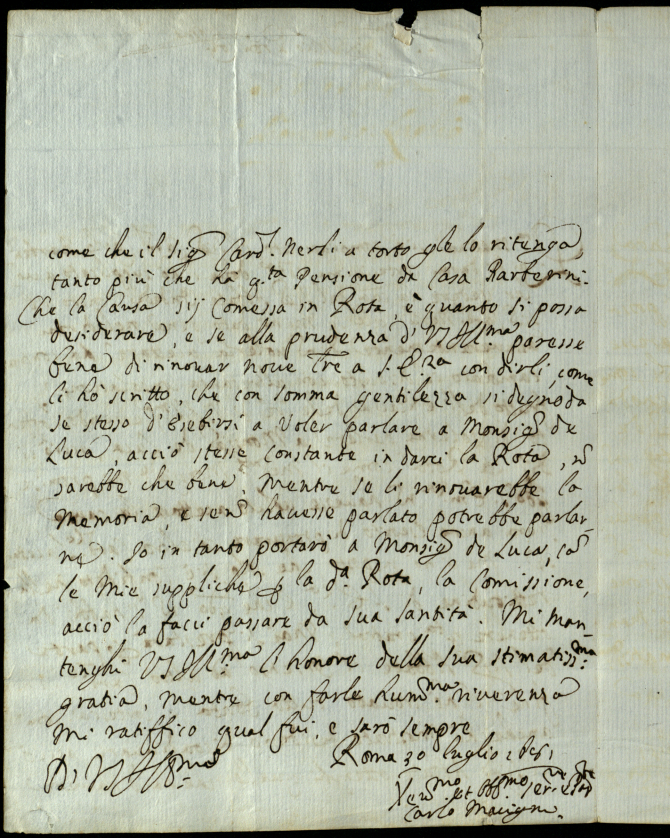 come che il Sig.r Card. Nerli a torto gle lo ritenga,
tanto più che ha q.ta Pensione da Casa Barberini.
Che la Causa sij Comessa in Rota, è quanto si possa
desiderare, e se alla prudenza di VS Ill.ma paresse
bene di rinovar nove Lre a S. E.za con dirli, come
li hò scritto, che con somma gentilezza si degnò da
se stesso d'Esebirsi a voler parlare a Monsig.r de
Luca, acciò stesse constante in darci la Rota, nō
sarebbe che bene, mentre se li rinovarebbe la
Memoria, e se nō havesse parlato potrebbe parlar
ne. Io in tanto portarò a Monsig.r de Luca, cō
le mie suppliche p la d.a Rota, la Comissione,
acciò la facci passare da Sua Santità. Mi man
tenghi VS Ill.ma l'honore della sua stimatiss.ma
gratia, mentre con farle hum.ma riverenza
mi ratiffico qual fui, e sarò sempre
Di VS Ill.ma
Roma 30 luglio
et Obb.mo
Carlo